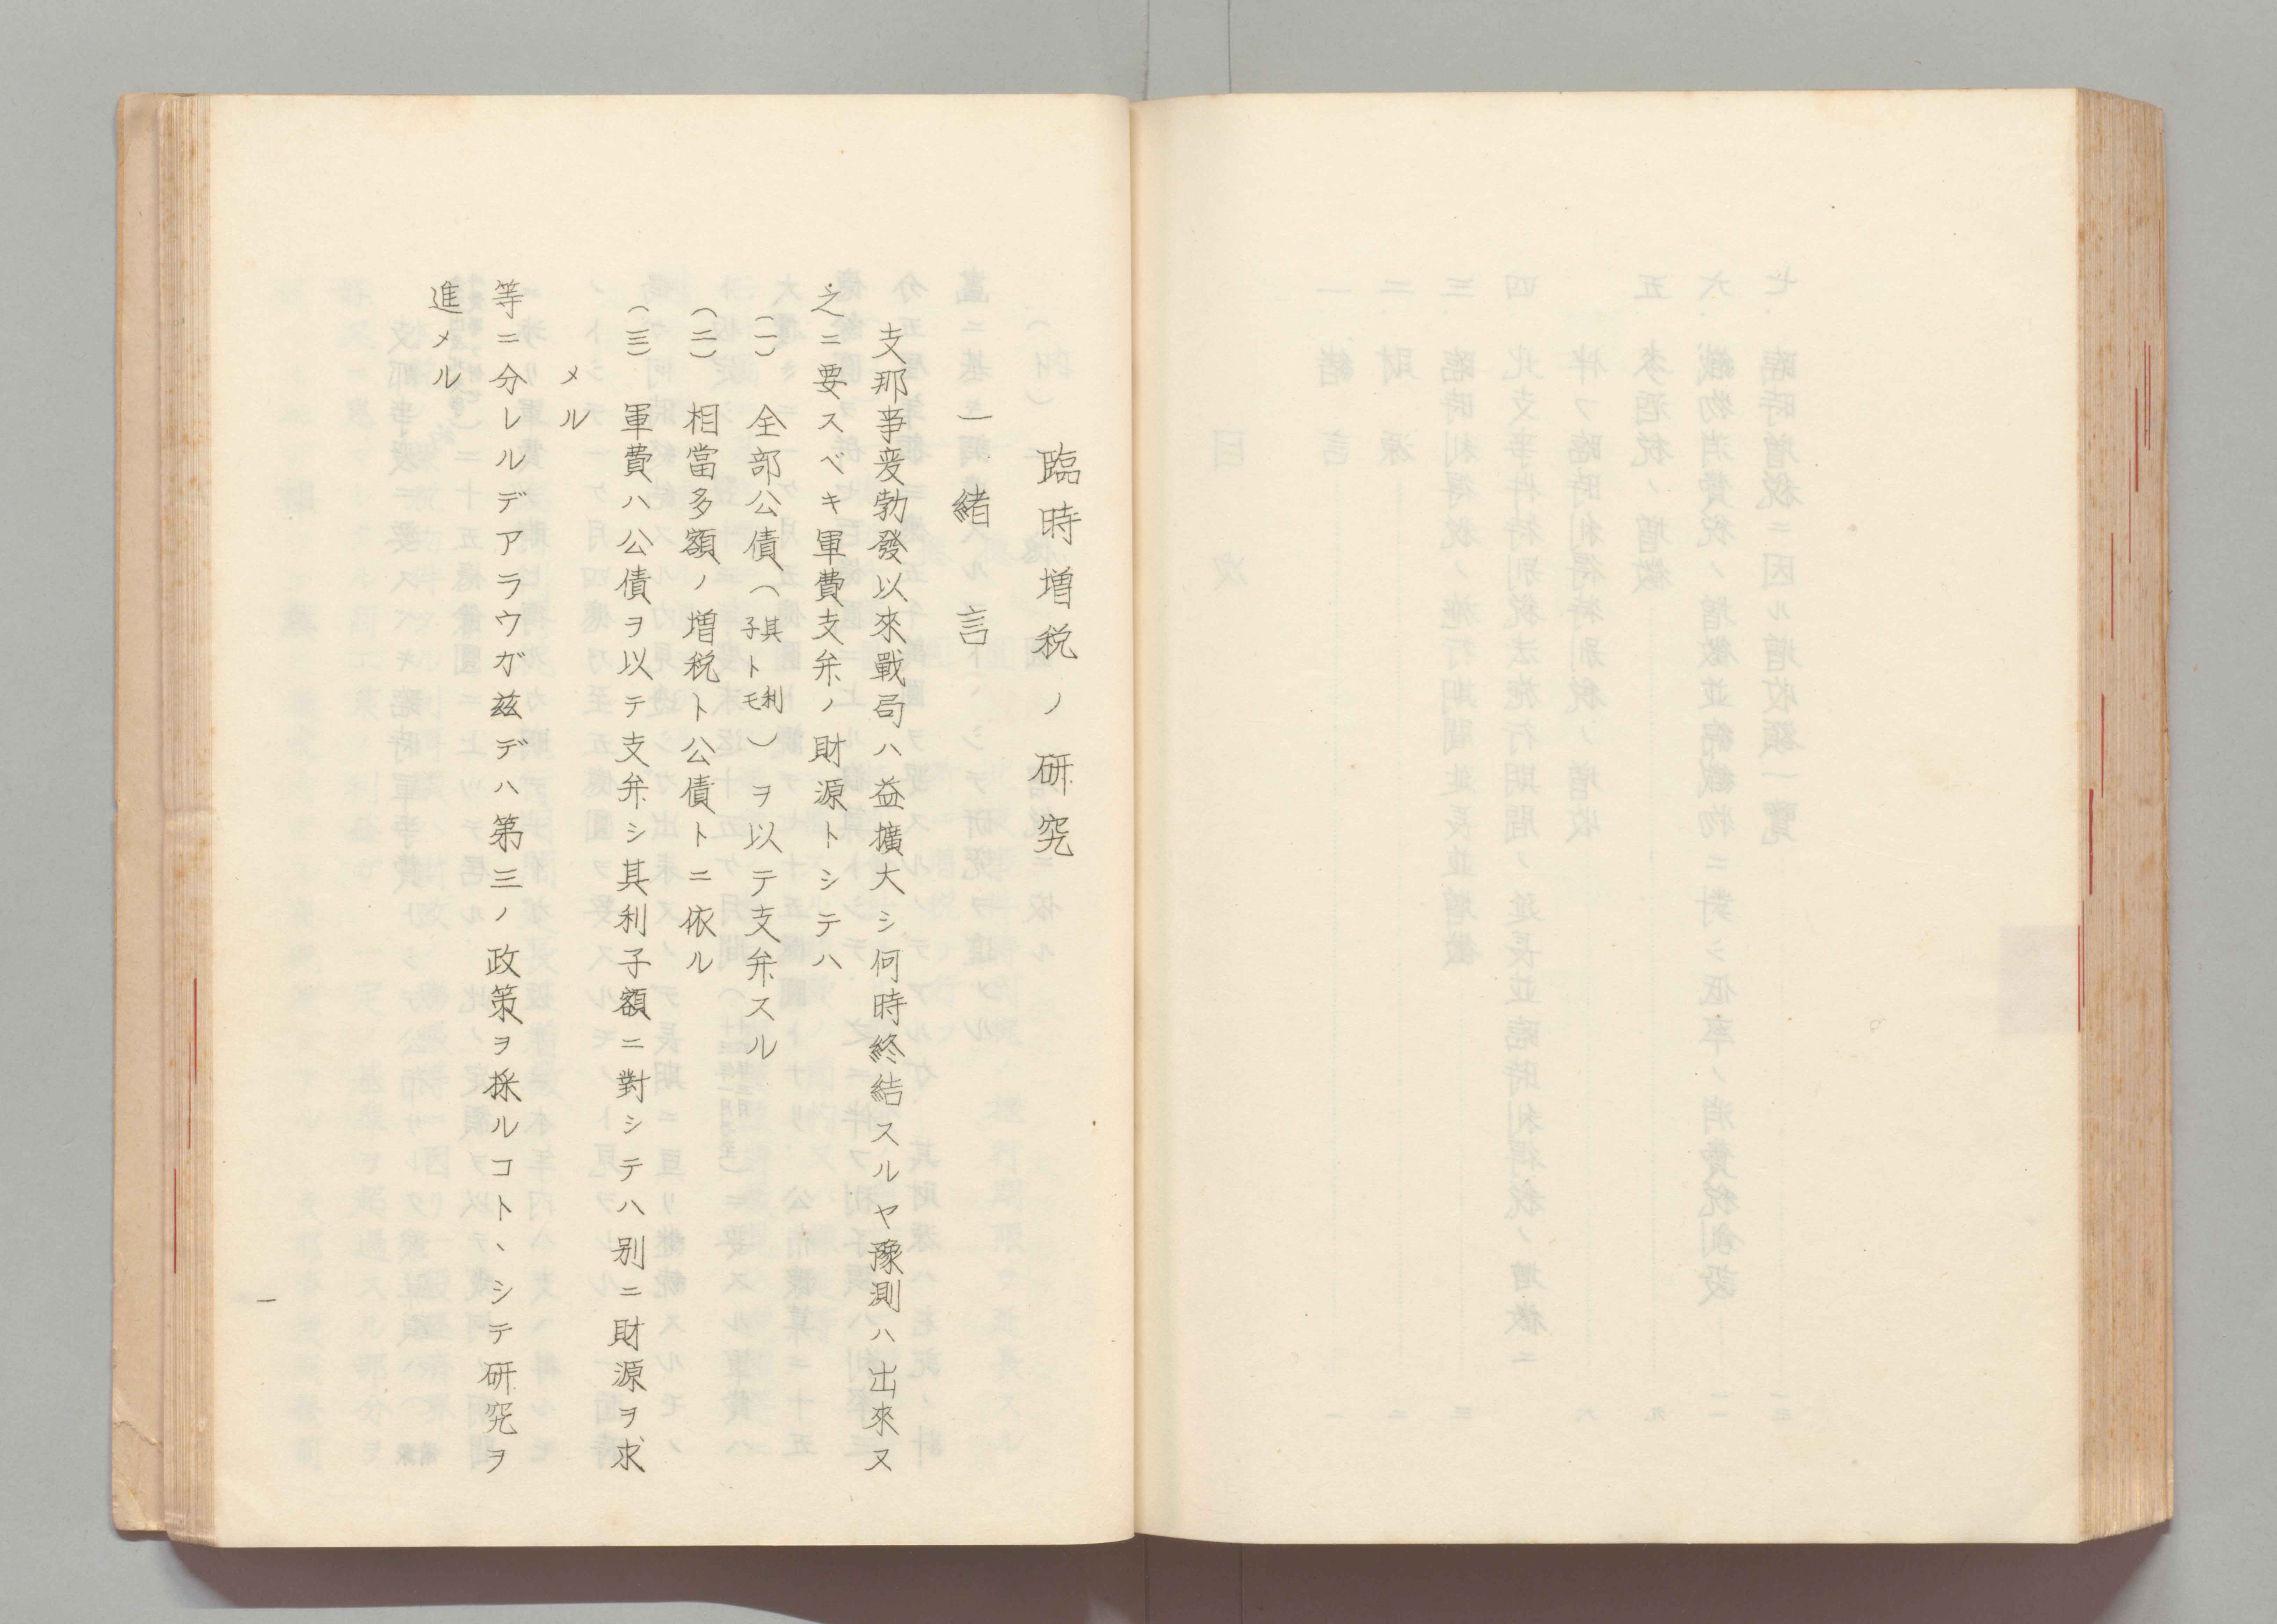 臨時増税ノ研究
一緒言
支那事変勃發以來戰局ハ益擴大シ何時終結スルヤ豫測ハ出來又
之ニ要スベキ軍費支弁ノ財源トシテハ
(一) 全部公債(其利子トモ)ヲ以テ支弁スル
(二) 相當多額ノ増税ト公債トニ依ル
(三) 軍費ハ公債ヲ以テ支弁シ其利子額ニ對シテハ別ニ財源ヲ求
メル
等ニ分レルデアラウガ茲デハ第三ノ政策ヲ採ルコトヽシテ研究ヲ
進メル
一